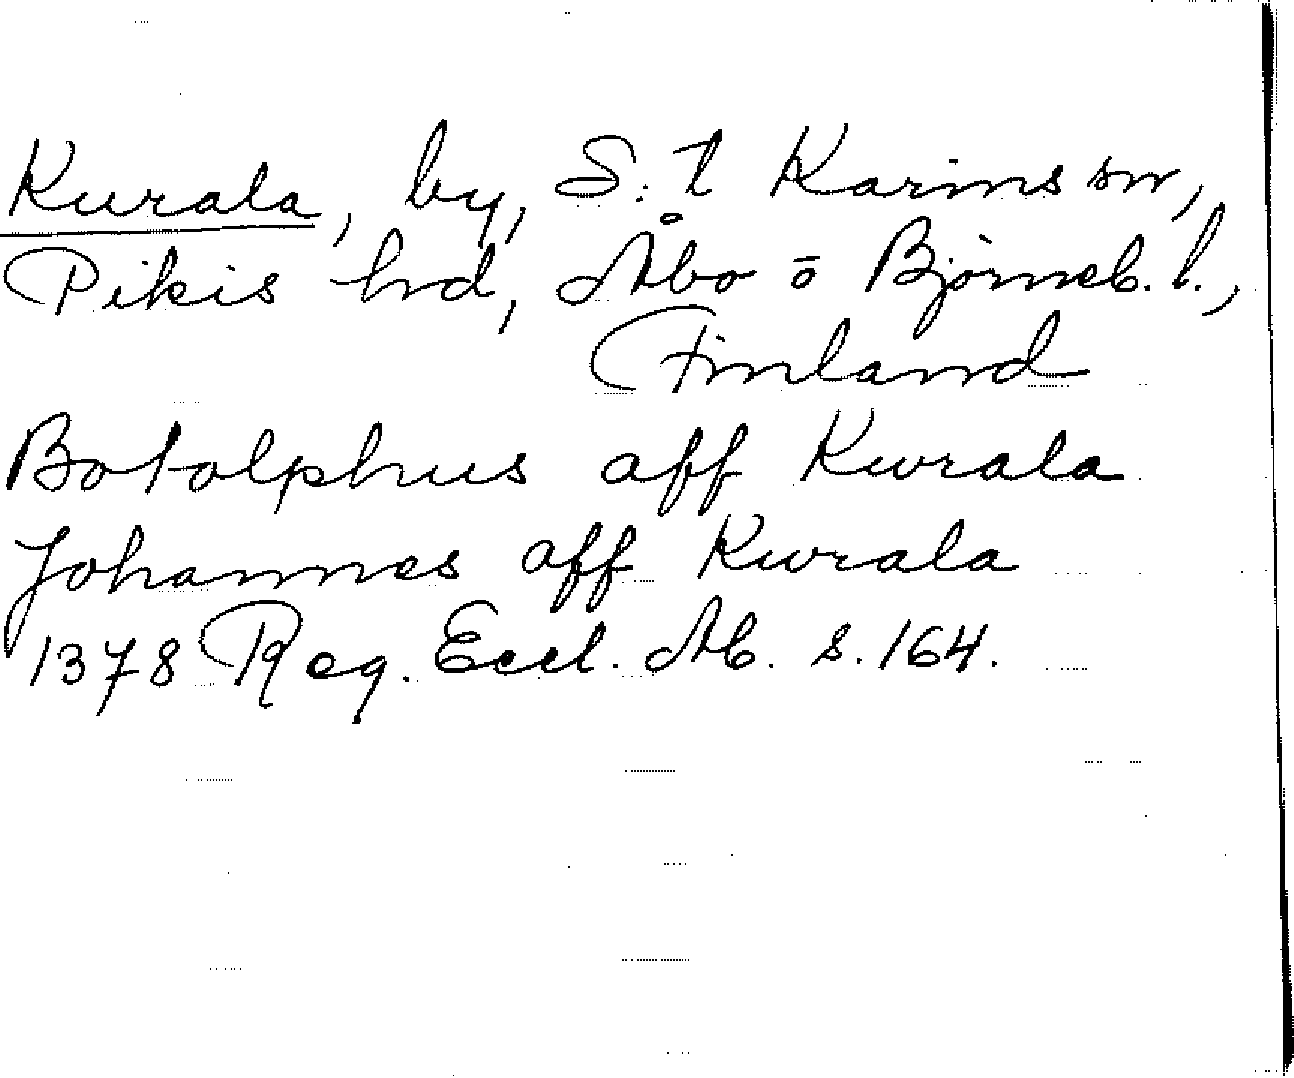 Kurala, by, S:t Karins sn,
Pikis hd, Åbo o Björneb. l.,
Finland
Botolphus aff Kwrala
Johannes aff Kwrala
1378 Reg. Eccl. Ab. s. 164.